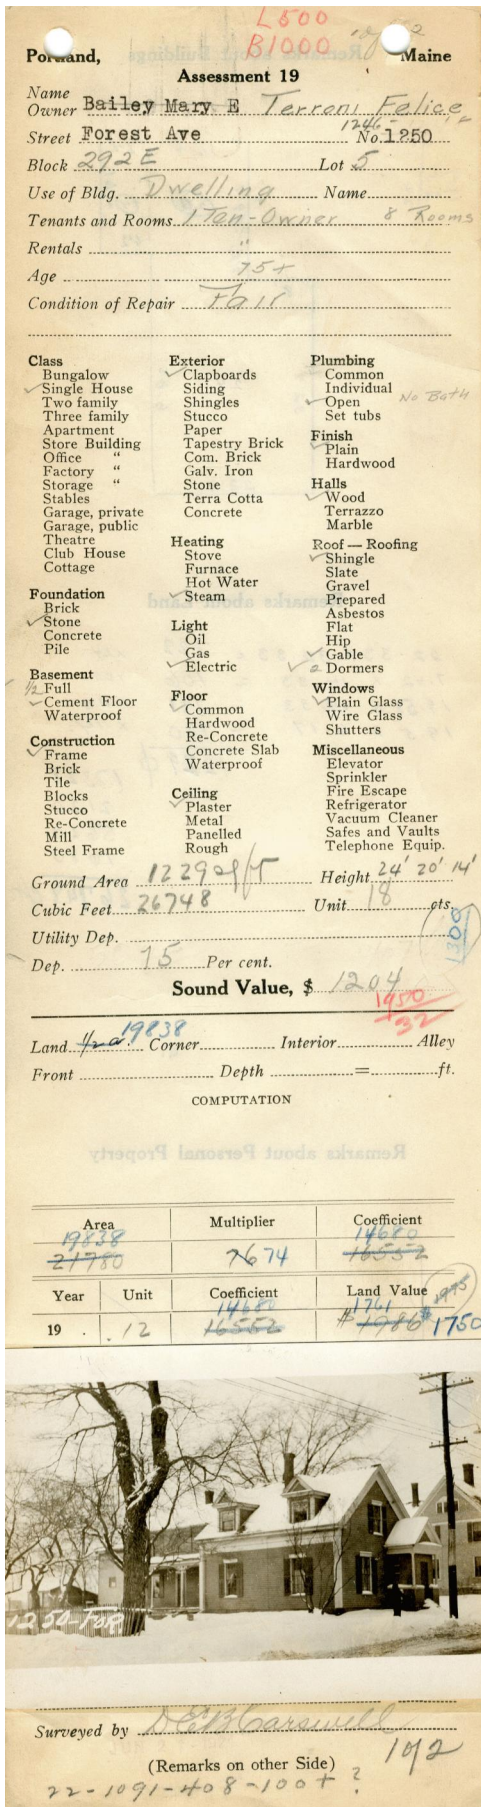 L500
B1000
1 of 2
Portland, Maine
Assessment 19
Name
Owner Bailey Mary E Terroni Felice
Street Forest Ave 1246- No. 1250
Block 292E Lot 5
Use of Bldg. Dwelling Name
Tenants and Rooms 1 Ten-Owner 8 Rooms
Rentals "
Age 75+
Condition of Repair Fair
Class
Bungalow
Single House
Two family
Three family
Apartment
Store Building
Office "
Factory "
Storage "
Stables
Garage, private
Garage, public
Theatre
Club House
Cottage
Foundation
Brick
Stone
Concrete
Pile
Basement
1/2 Full
Cement Floor
Waterproof
Construction
Frame
Brick
Tile
Blocks
Stucco
Re-Concrete
Mill
Steel Frame
Exterior
Clapboards
Siding
Shingles
Stucco
Paper
Tapestry Brick
Com. Brick
Galv. Iron
Stone
Terra Cotta
Concrete
Heating
Stove
Furnace
Hot Water
Steam
Light
Oil
Gas
Electric
Floor
Common
Hardwood
Re-Concrete
Concrete Slab
Waterproof
Ceiling
Plaster
Metal
Panelled
Rough
Plumbing
Common
Individual
Open No Bath
Set tubs
Finish
Plain
Hardwood
Halls
Wood
Terrazzo
Marble
Roof — Roofing
Shingle
Slate
Gravel
Prepared
Asbestos
Flat
Hip
Gable
2 Dormers
Windows
Plain Glass
Wire Glass
Shutters
Miscellaneous
Elevator
Sprinkler
Fire Escape
Refrigerator
Vacuum Cleaner
Safes and Vaults
Telephone Equip.
Ground Area 1229 sq ft Height 24' 20' 14'
Cubic Feet 26748 Unit 18 cts.
Utility Dep.
1300
Dep. 75 Per cent.
Sound Value, $ 1204
1950/32
19838
Land 1/2 a. Corner Interior Alley
Front Depth = ft.
COMPUTATION
Remarks about Personal Property
Area Multiplier Coefficient
19838 14680
21780 76 74 16552
Year Unit Coefficient Land Value 1975
14680 1761
19 .12 16552 $1986 $1750
1250-FOR
Surveyed by D E B Carswell
(Remarks on other Side) 1 of 2
22-1091-408-100+ ?